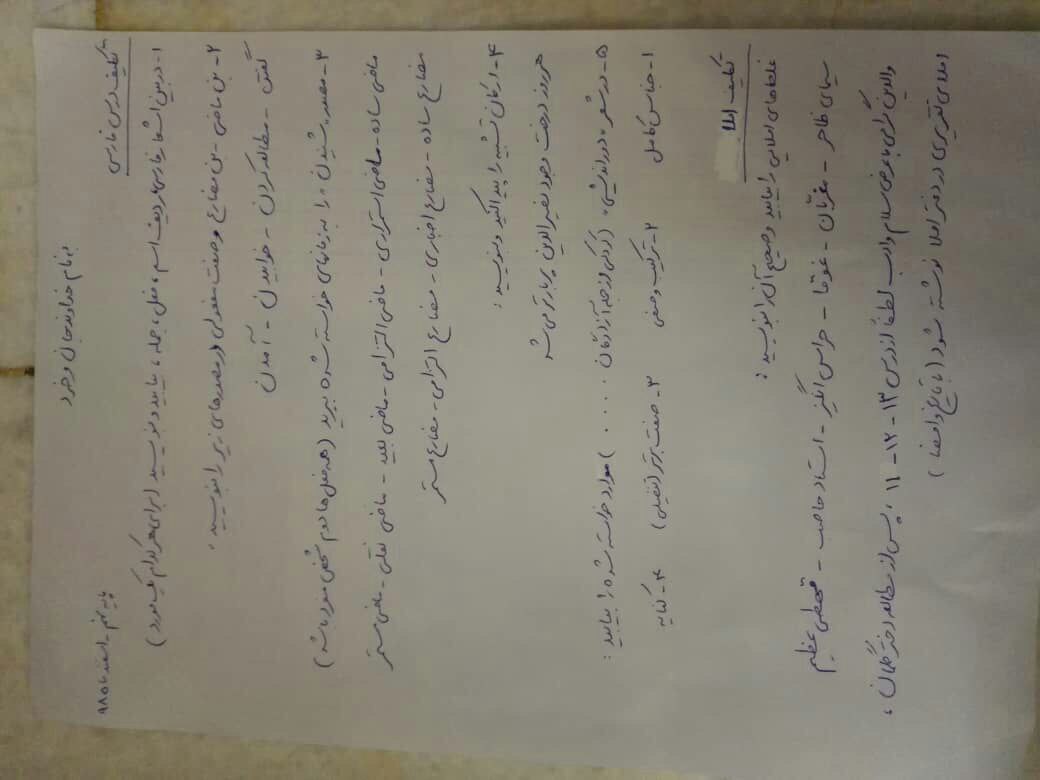 بنام خداوند جان و خرد
پایه نهم - اسفند ماه ۹۸
تکلیف درس فارسی
۱- در بین اشعار فارسی ردیف اسم ، فعل ، جمله ، بیابید و بنویسید (برای هر کدام یک مورد)
۲- بن ماضی - بن مضارع و صفت مفعولی (در مصدرهای زیر را بنویسید .
گفتن - مطالعه کردن - خوابیدن - آمدن
۳- مصدر « شنیدن » را به زمانهای خواسته شده ببرید (همه فعل ها دوم شخص مفرد باشد)
ماضی ساده - ماضی استمراری - ماضی التزامی - ماضی بعید - ماضی نقلی - ماضی مستمر
مضارع ساده - مضارع اخباری - مضارع التزامی - مضارع مستمر
۴- ارکان تشبیه را پیدا کنید و بنویسید :
هر روز درخت وجود نصیرالدین پربارتر می شد
۵- در شعر « دوراندیشی » (کودکی از جمله آزادگان . . . . . ) موارد خواسته شده را بیابید :
۱- جناس کامل ۲- ترکیب وصفی ۳- صفت برتر (تفضیلی) ۴- کنایه
تکلیف املا
غلطهای املایی را بیابید و صحیح آن را بنویسید :
سیمای ظاهر - مغربان - غوقا - حراس انگیز - استاد حاصب - قحطی عظیم
والدین گرامی با عرض سلام و ادب لطفا از درس ۱۳ - ۱۲ - ۱۱ ، پس از مطالعه دخترگلتان ،
املای تقریری در دفتر املا نوشته شود (با تاریخ و امضا)